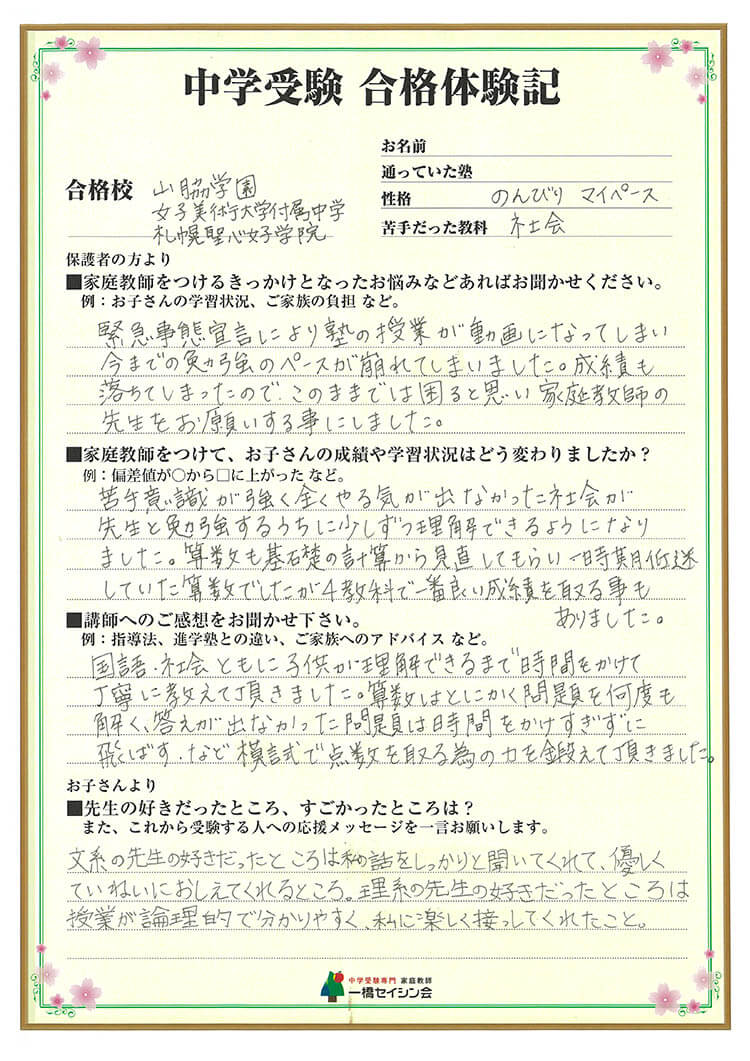 中学受験 合格体験記
お名前
通っていた塾
合格校 山脇学園
女子美術大学付属中学
札幌聖心女子学院
性格 のんびり マイペース
苦手だった教科 社会
保護者の方より
■家庭教師をつけるきっかけとなったお悩みなどあればお聞かせください。
例：お子さんの学習状況、ご家族の負担 など。
緊急事態宣言により塾の授業が動画になってしまい
今までの勉強のペースが崩れてしまいました。成績も
落ちてしまったので、このままでは困ると思い家庭教師の
先生をお願いする事にしました。
■家庭教師をつけて、お子さんの成績や学習状況はどう変わりましたか？
例：偏差値が○から□に上がった など。
苦手意識が強く全くやる気が出なかった社会が
先生と勉強するうちに少しずつ理解できるようになり
ました。算数も基礎の計算から見直してもらい一時期低迷
していた算数でしたが4教科で一番良い成績を取る事も
ありました。
■講師へのご感想をお聞かせ下さい。
例：指導法、進学塾との違い、ご家族へのアドバイス など。
国語・社会ともに子供が理解できるまで時間をかけて
丁寧に教えて頂きました。算数はとにかく問題を何度も
解く、答えが出なかった問題は時間をかけすぎずに
飛ばす・など模試で点数を取る為の力を鍛えて頂きました。
お子さんより
■先生の好きだったところ、すごかったところは？
また、これから受験する人への応援メッセージを一言お願いします。
文系の先生の好きだったところは私の話をしっかりと聞いてくれて、優しく
ていねいにおしえてくれるところ。理系の先生の好きだったところは
授業が論理的で分かりやすく、私に楽しく接っしてくれたこと。
中学受験専門 家庭教師
一橋セイシン会